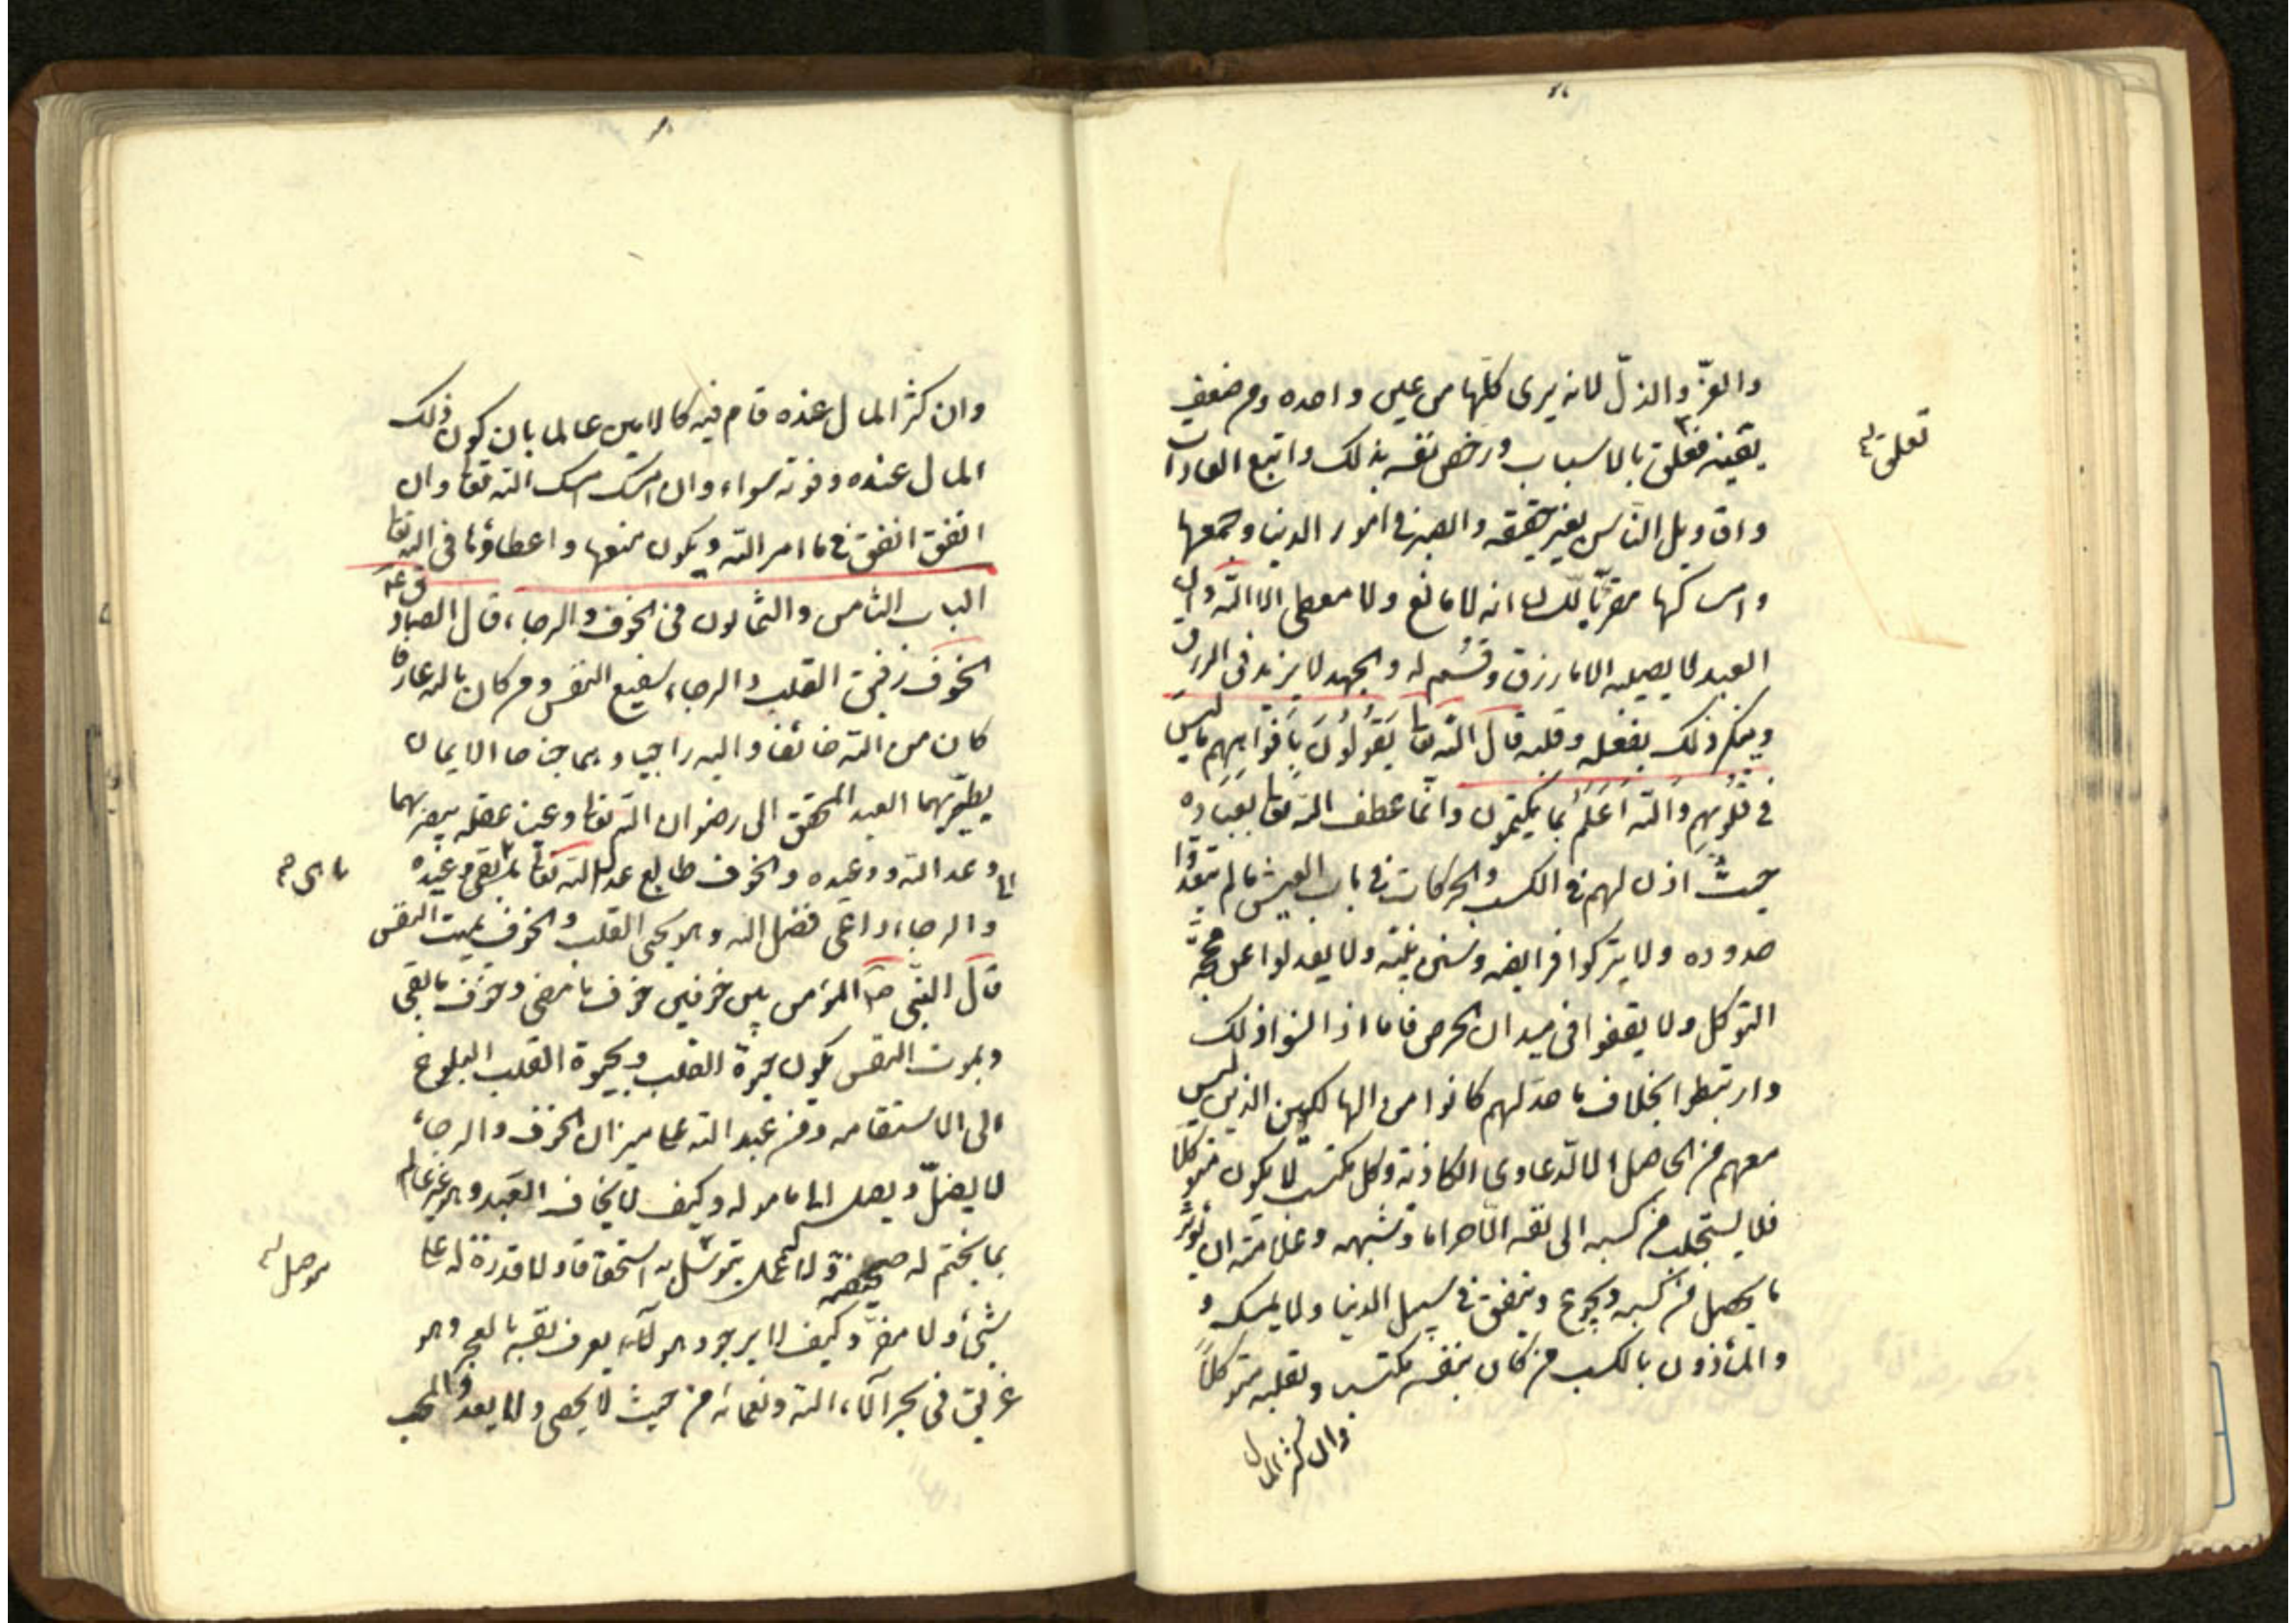 والعزّ والذلّ لانه يرى كلّها من عين واحده ومن ضعف
يقينه فعلق بالاسباب ورخص نفسه بذلك واتبع العادات
تعلق
واقاويل الناس بغير حقيقه والصبر في امور الدنيا وجمعها
وامساكها مقرّباً للسان انه لا مانع ولا معطي الا الله وان
العبد لا يصيبه الا ما رزق وقسم له والجهد لا يزيد في الرزق
وينكر ذلك بفعله وقلبه قال الله تعا يَقُولُونَ بِأَفْوَاهِهِم ما ليس
في قُلُوبِهِم وَالله أَعْلَمُ بما يكتمون وانما عطف الله تعا بعباده
حيث اذن لهم في الكسب والحركات في باب العيش ما لم يتعدوا
حدوده ولا يتركوا فرايضه وسنن نبيّه ولا يعدلوا عن محجّة
التوكل ولا يقفوا في ميدان الحرص فاما اذا نسوا ذلك
وارتبطوا بخلاف ما حدّ لهم كانوا من الهالكين الذين ليس
معهم في الحاصل الا الدعاوى الكاذبة وكل مكتسب لا يكون متوكلاً
فلا يستجلب من كسبه الى نفسه الا حراما وشبهه وعلامته ان يؤثر
ما يحصل من كسبه ويجوع وينفق في سبيل الدنيا ولا يمسك و
والمأذون بالكسب من كان بنفسه مكتسب وبقلبه متوكلاً
وان كثر المال
وان كثر المال عنده قام فيه كالامين عالما بان كون ذلك
المال عنده وفوته سواء وان امسك امسك لله تعا وان
انفق انفق في ما امر الله ويكون منعها واعطاؤها في الله تعا
الباب الثامن والثمانون في الخوف والرجاء قال الصادق ع
الخوف رقيب القلب والرجاء شفيع النفس ومن كان بالله عارفا
كان من الله خائفا واليه راجيا وهما جناحا الايمان
يطير بهما العبد المحقق الى رضوان الله تعا وعين عقله يبصر بهما
الى وعد الله ووعيده والخوف طالع عدل الله تعا يتقى وعيده
والرجاء داعى فضل الله وهو يحيى القلب والخوف يميت النفس
قال النبّى ص المؤمن بين خوفين خوف ما مضى وخوف ما بقى
وبموت النفس يكون حيوة القلب وبحيوة القلب البلوغ
الى الاستقامه ومن عبد الله على ميزان الخوف والرجاء
لا يضلّ ويصل الى ماموله وكيف لا يخاف العبد وهو غير عالم
بما يختم له صحيفته ولا له عمل يتوسّل به استحقاقا ولا قدرة له على
شيئ ولا مفرّ وكيف لا يرجو وهو يعرف نفسه بالعجز وهو
غريق في بحر آلاء الله ونعمائه من حيث لا يحصى ولا يعد والمحب